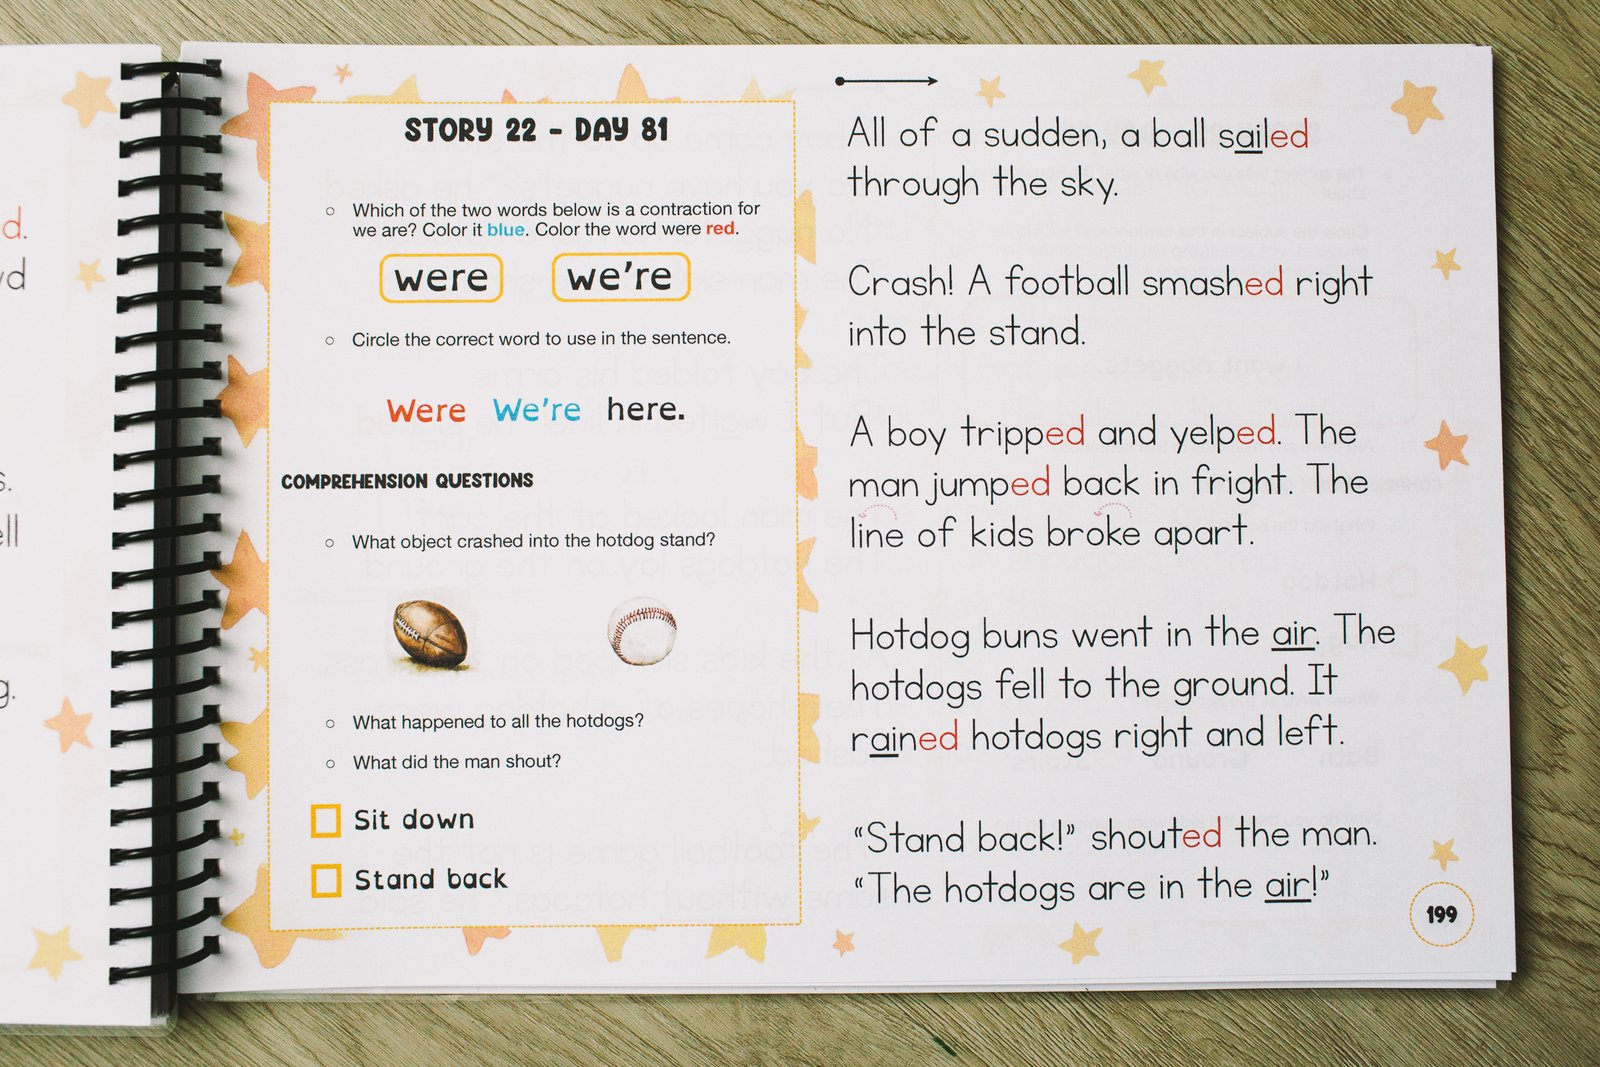 STORY 22 - DAY 81
Which of the two words below is a contraction for
we are? Color it blue. Color the word were red.
were we're
Circle the correct word to use in the sentence.
Were We're here.
COMPREHENSION QUESTIONS
What object crashed into the hotdog stand?
What happened to all the hotdogs?
What did the man shout?
Sit down
Stand back
All of a sudden, a ball sailed
through the sky.
Crash! A football smashed right
into the stand.
A boy tripped and yelped. The
man jumped back in fright. The
line of kids broke apart.
Hotdog buns went in the air. The
hotdogs fell to the ground. It
rained hotdogs right and left.
“Stand back!” shouted the man.
“The hotdogs are in the air!”
199